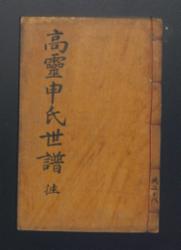 高靈申氏世譜